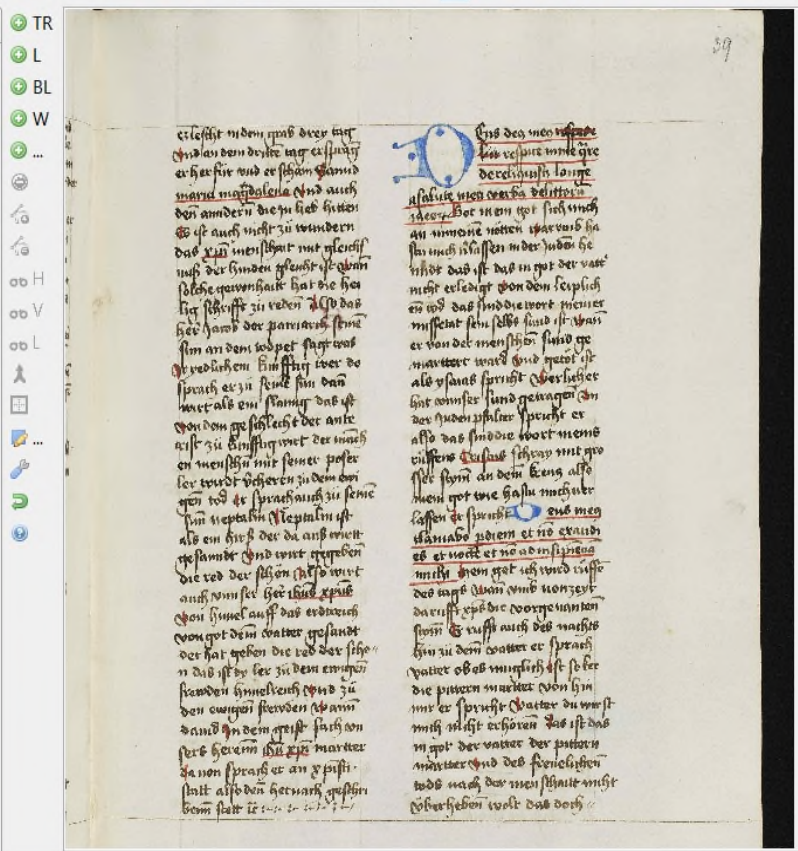 TR
L
BL
W
...
H
V
L
...
39
erlescht in dem grab drey tag
Vnd an dem dritten tag er sprang
er her für vnd er schain
maria magdalena Vnd auch
den anndern die in lieb hetten
Es ist auch nicht zu wundern
das xpi menschait mit gleichs
nuß der hinden gleicht ist Wan
solche gewonhait hat die hei
lig schrifft zu reden Also das
her Jacob der patriarch seine
sun an dem todpet sagt was
kunfftig wer do
sprach er zu seine sun dan
wirt als ein slanng das ist
Von dem geschlecht der ante
crist zu kunfftig wirt der mach
en menschn mit seiner poser
ler wirdt Vcheren zu dem ewi
gen tod Er sprach auch zu seine
sun neptalim Neptalim ist
als ein hirß der da auß wirtt
gesanndt Vnd wirt gegeben
die red der schön Also wirt
auch vnnser her ihus xpus
Von himel auff das erdtreich
von got dem vatter gesandt
der hat geben die red der scho
n das ist dy ler zu dem ewigen
frewden himelreich Vnd zu
den ewigen frewden Wann
dauid In dem geist sach von
sers herenn ihu xpi martter
da von sprach er an
statt also den hernach geschri
benn stett
Eus deus meus
respice in me qre
dereliquisti longe
a salute mea verba delictorum
meorum Got mein got sich mich
an in meine nötten warumb ha
stu mich Vlassen in der Juden he
nndt das ist das in got der vatter
nicht erledigt Von dem leiplich
en tod das sind die wort meiner
missetat sein selbs sund ist Wan
er von der menschen sund ge
marttert ward Vnd getöt ist
als ysaias spricht Werlicher
hat vnnser sund getragen In
der Juden psalter spricht er
also das sind die wort meins
rüffens Cristus schray mit gro
sser stym an dem kreuz also
mein got wie hastu mich ver
lassen er spricht Deus meus
clamabo p diem et no exaudi
es et nocte et no ad insipiencia
michi Mein got ich wird rüffe
des tags Wan vmb nonzeyt
da rufft xps die vorgenanten
stym Er rufft auch des nachts
hin zu dem vatter er sprach
vatter ob es muglich ist so ker
die pittern martter von hin
mir er spricht Vatter du wirst
mich nicht erhören Das ist das
in got der vatter der pittern
martter Vnd des freuelichen
tods nach der menschait nicht
Vberheben wolt das doch